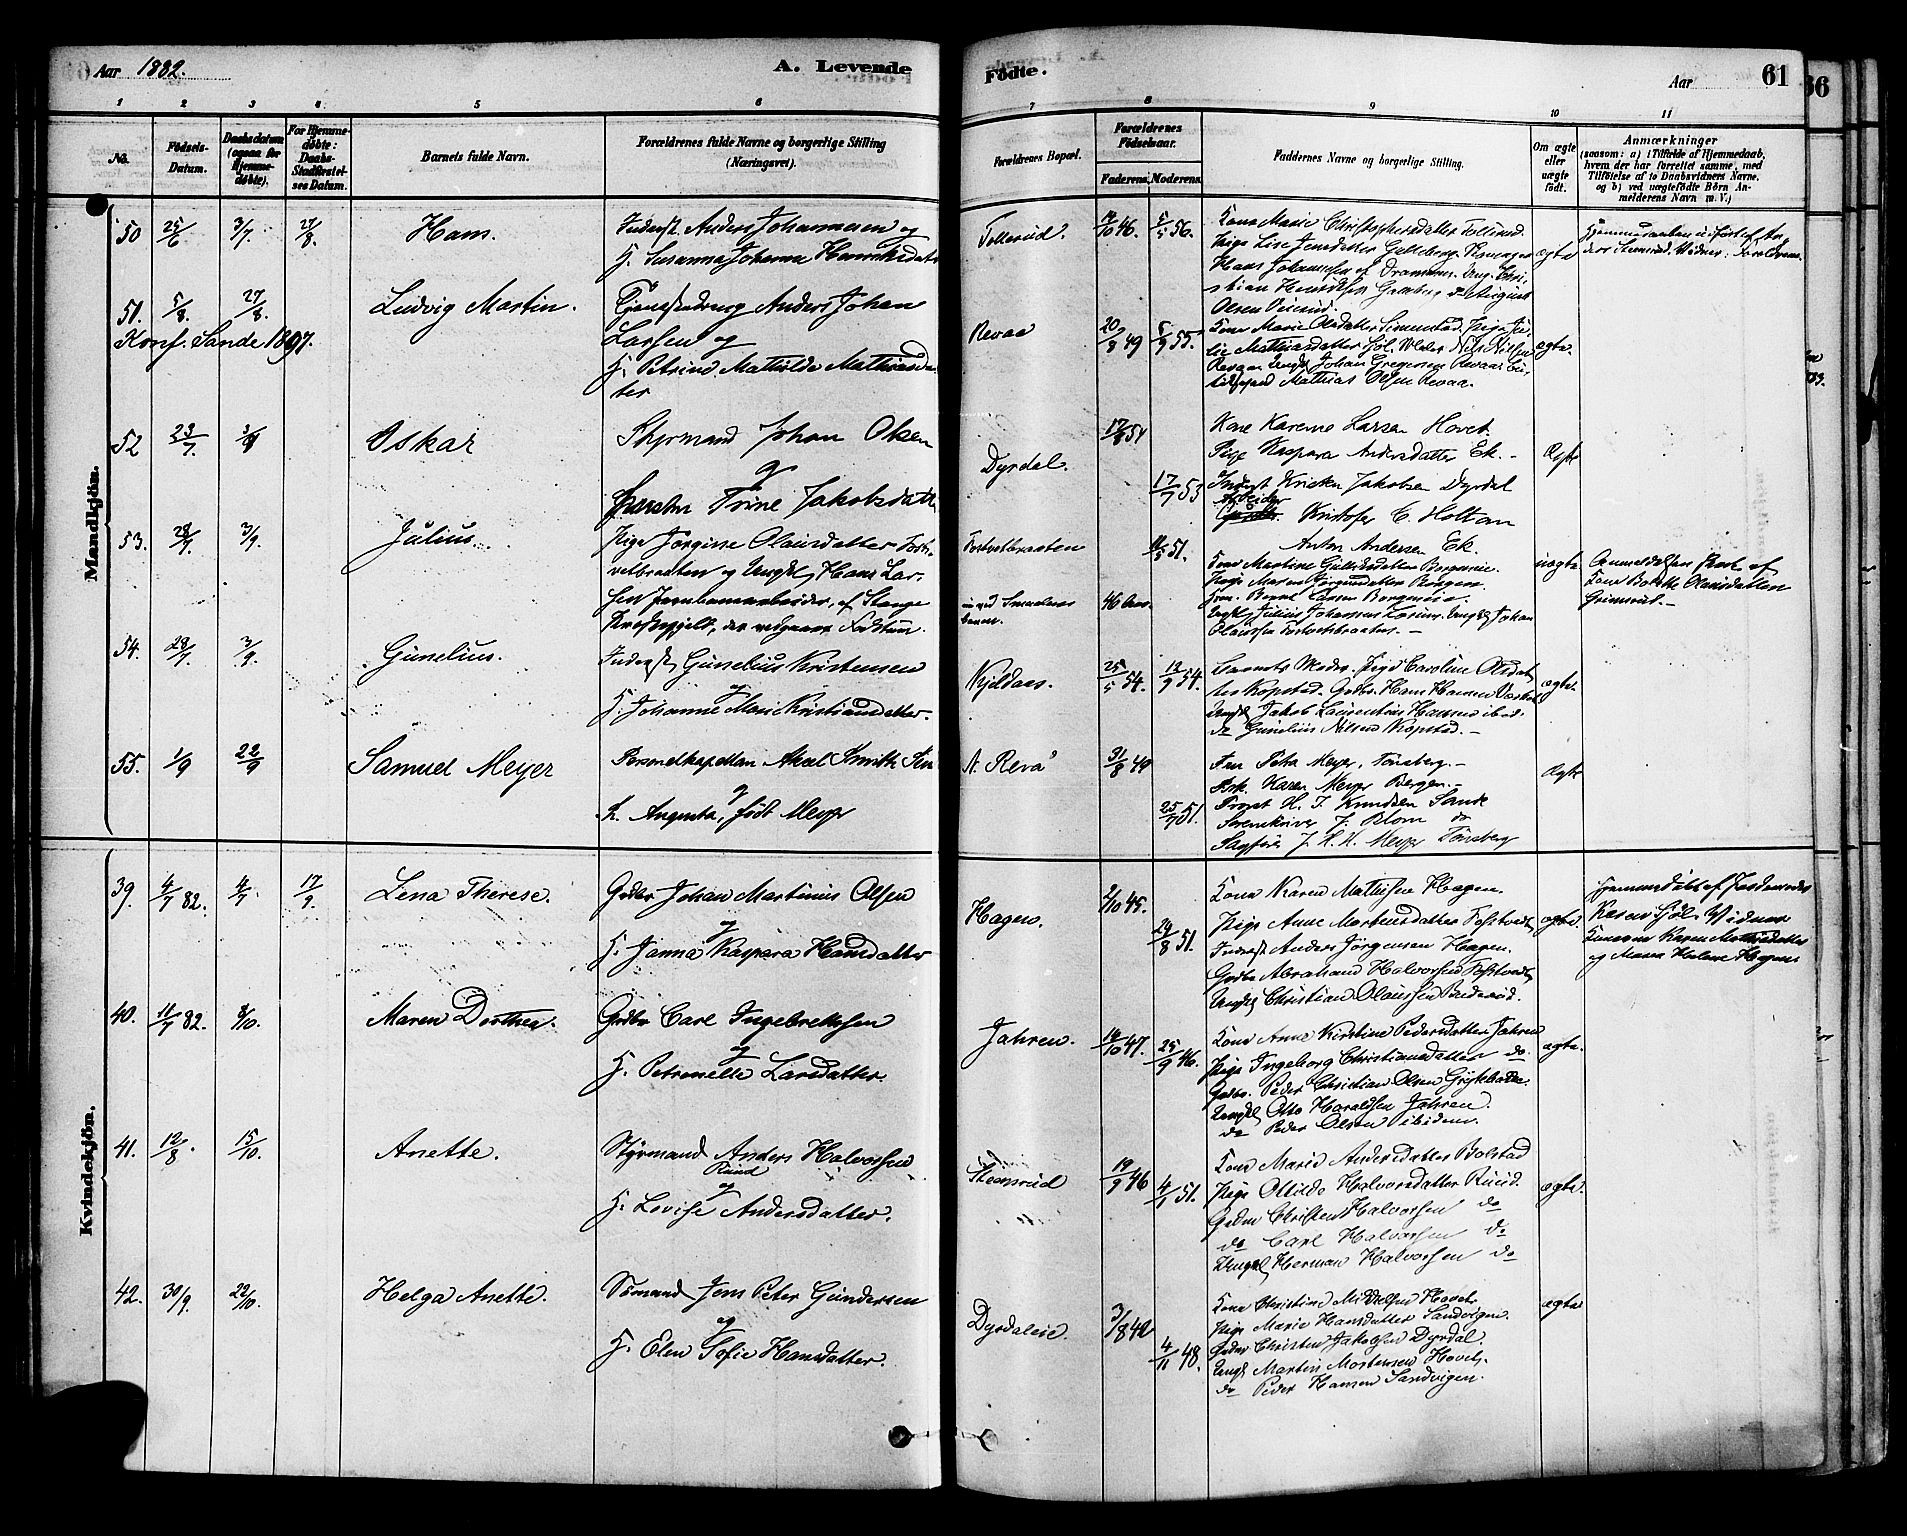 Aar 1882.
A. Levende
Fødte.
Aar
61
1 2 3 4 5 6
7 8 9 10 11
No.
Fødsels-
Datum.
Daabsdatum
(ogsaa for
Hjemme-
døbte).
For Hjemme-
døbte:
Daabs-
Stadfæstel-
ses Datum.
Barnets fulde Navn.
Forældrenes fulde Navne og borgerlige Stilling
(Næringsvei).
Forældrenes Bopæl.
Forældrenes
Fødselsaar.
Faderens. Moderens.
Faddernes Navne og borgerlige Stilling.
Om ægte
eller
uægte
født.
Anmærkninger
(saasom: a) i Tilfælde af Hjemmedaab,
hvem der har forrettet samme, med
Tilføielse af to Daabsvidners Navne,
og b) ved uægtefødte Børn An-
melderens Navn m. V.)
Mandkjön.
50 25/6 3/7 27/8 Hans.
Inderst Anders Johannesen og
H. Susanna Johanna Henriksdatter
Tollerud. 46. 5/5 56.
Kone Marie Christophersdatter Tollerud.
Pige Lise Jensdatter Galleberg
Hans Johannesen af Drammen. Ungk. Chri-
stian Henriksen Galleberg do August
Olsen
ægte
51. 5/8. 27/8. Ludvig Martin.
Konf. Sande 1897.
Tjenestedreng Anders Johan
Larsen og
H. Petrine Mathilde Mathiasdat-
ter
Revaa 20/8 49 5/9 55.
Kone Marie Olsdatter Simenstad. Pige Ju-
lie Mathiasdatter Nils Nilsen
Revaa. Ungk. Johan Gregersen Revaa.
Mathias Olsen Revaa.
ægte.
52 23/7. 3/9 Oskar
Styrmand Johan Olsen
og
Trine Jakobsdatt
Dyrdal. 54 17/7 53
Kone Karenne Larsen Hovet.
Pige Kaspara Andersdatter Ek.
Inderst Kristen Jakobsen Dyrdal
Arbeider Kristofer C. Holtan
Anton Andersen Ek.
Ægte
53. 28/7. 3/9. Julius.
Pige Jorgine Olausdatter Fost-
vetbraaten og Ungkl. Hans Lar-
sen Jernbanearbeider, af Stange
Præstegjeld,
Fostvetbraaten 46 51.
Kone Martine Gullichsdatter Borgeneie.
Pige Maren Jörgensdatter Borgen
Bernt Larsen Borgeneie.
Ungk. Julius Johannesen Ungkl. Johan
Olaussen Fostvetbraaten.
uægte
Anmeldelsen Prest af
Kone Olausdatter
Grimsrud.
54. 28/7. 3/9. Gunelius.
Inderst Gunelius Kristensen
og
H. Johanne Marie Kristiansdatter.
Kjeldaas. 25/5 54. 12/9 54.
Barnets Moder. Pige Caroline Olsdat-
ter Kopstad. Gdbr. Hans Hansen
Ungkl. Jakob Laurentius Hansen ibid.
do Gunelius Nilsen Kopstad.
ægte.
55. 1/9 22/9 Samuel Meyer
Personelkapellan Axel Smith
og
H. Augusta, født Meyer
N. Revå 31/8 49 25/7 51.
Fru Petra Meyer, Tönsberg.
Frk. Karen Meyer Bergen.
Provst H. J. Knudsen Sande
Sorenskriver J. Blom do
Sagfører J. H. H. Meyer Tönsberg
Ægte
Kvindekjön.
39. 4/7 82. 4/7. 17/9 Lena Therese.
Grdbr Johan Martinius Olsen
og
H. Janna Kaspara Hansdatter
Hagen. 2/10 45. 29/8 51.
Kone Karen Mathisen Hagen.
Pige Anne Martensdatter Fostvedt
Inderst Andreas Jörgensen Hagen.
Grdbr Abraham Halvorsen Fostvedt
Ungkl. Christian Olaussen
ægte.
Hjemmedøbt af Jordemoder
Karen Vidner
Konerne Karen Mathisdatter
og Maren Helene Hagen
40. 11/7 82. 8/10. Maren Dorthea.
Grdbr Carl Ingebretsen
og
H. Petronelle Larsdatter.
Jahren. 47. 25/9 46.
Kone Anne Kirstine Pedersdatter Jahren
Pige Ingeborg Christiansdatter do.
Grdbr. Peder Christian Olsen
Ungkl. Otto Haraldsen Jahren.
do Peder Olsen ibidem.
ægte.
41. 12/8. 15/10. Anette.
Styrmand Anders Halvorsen
Ruud
og
H. Lovise Andersdatter.
19/9 46 4/1 51.
Kone Marie Andersdatter Bolstad
Pige Otilde Halvorsdatter Ruud.
Grdbr Christen Halvorsen do
do Carl Halvorsen do
Ungkl. Herman Halvorsen do
ægte.
42. 30/9. 22/10. Helga Anette.
Sömand Jens Peter Gundersen
og
H. Elen Sofie Hansdatter.
Dyrdaleie. 3/8 42 4/11 48.
Kone Christine Mikkelsen Hovet.
Pige Marie Hansdatter Sandvigen.
Grdbr Christen Jakobsen Dyrdal.
Ungk Martin Mortensen Hovet.
do Peder Hansen Sandvigen.
ægte